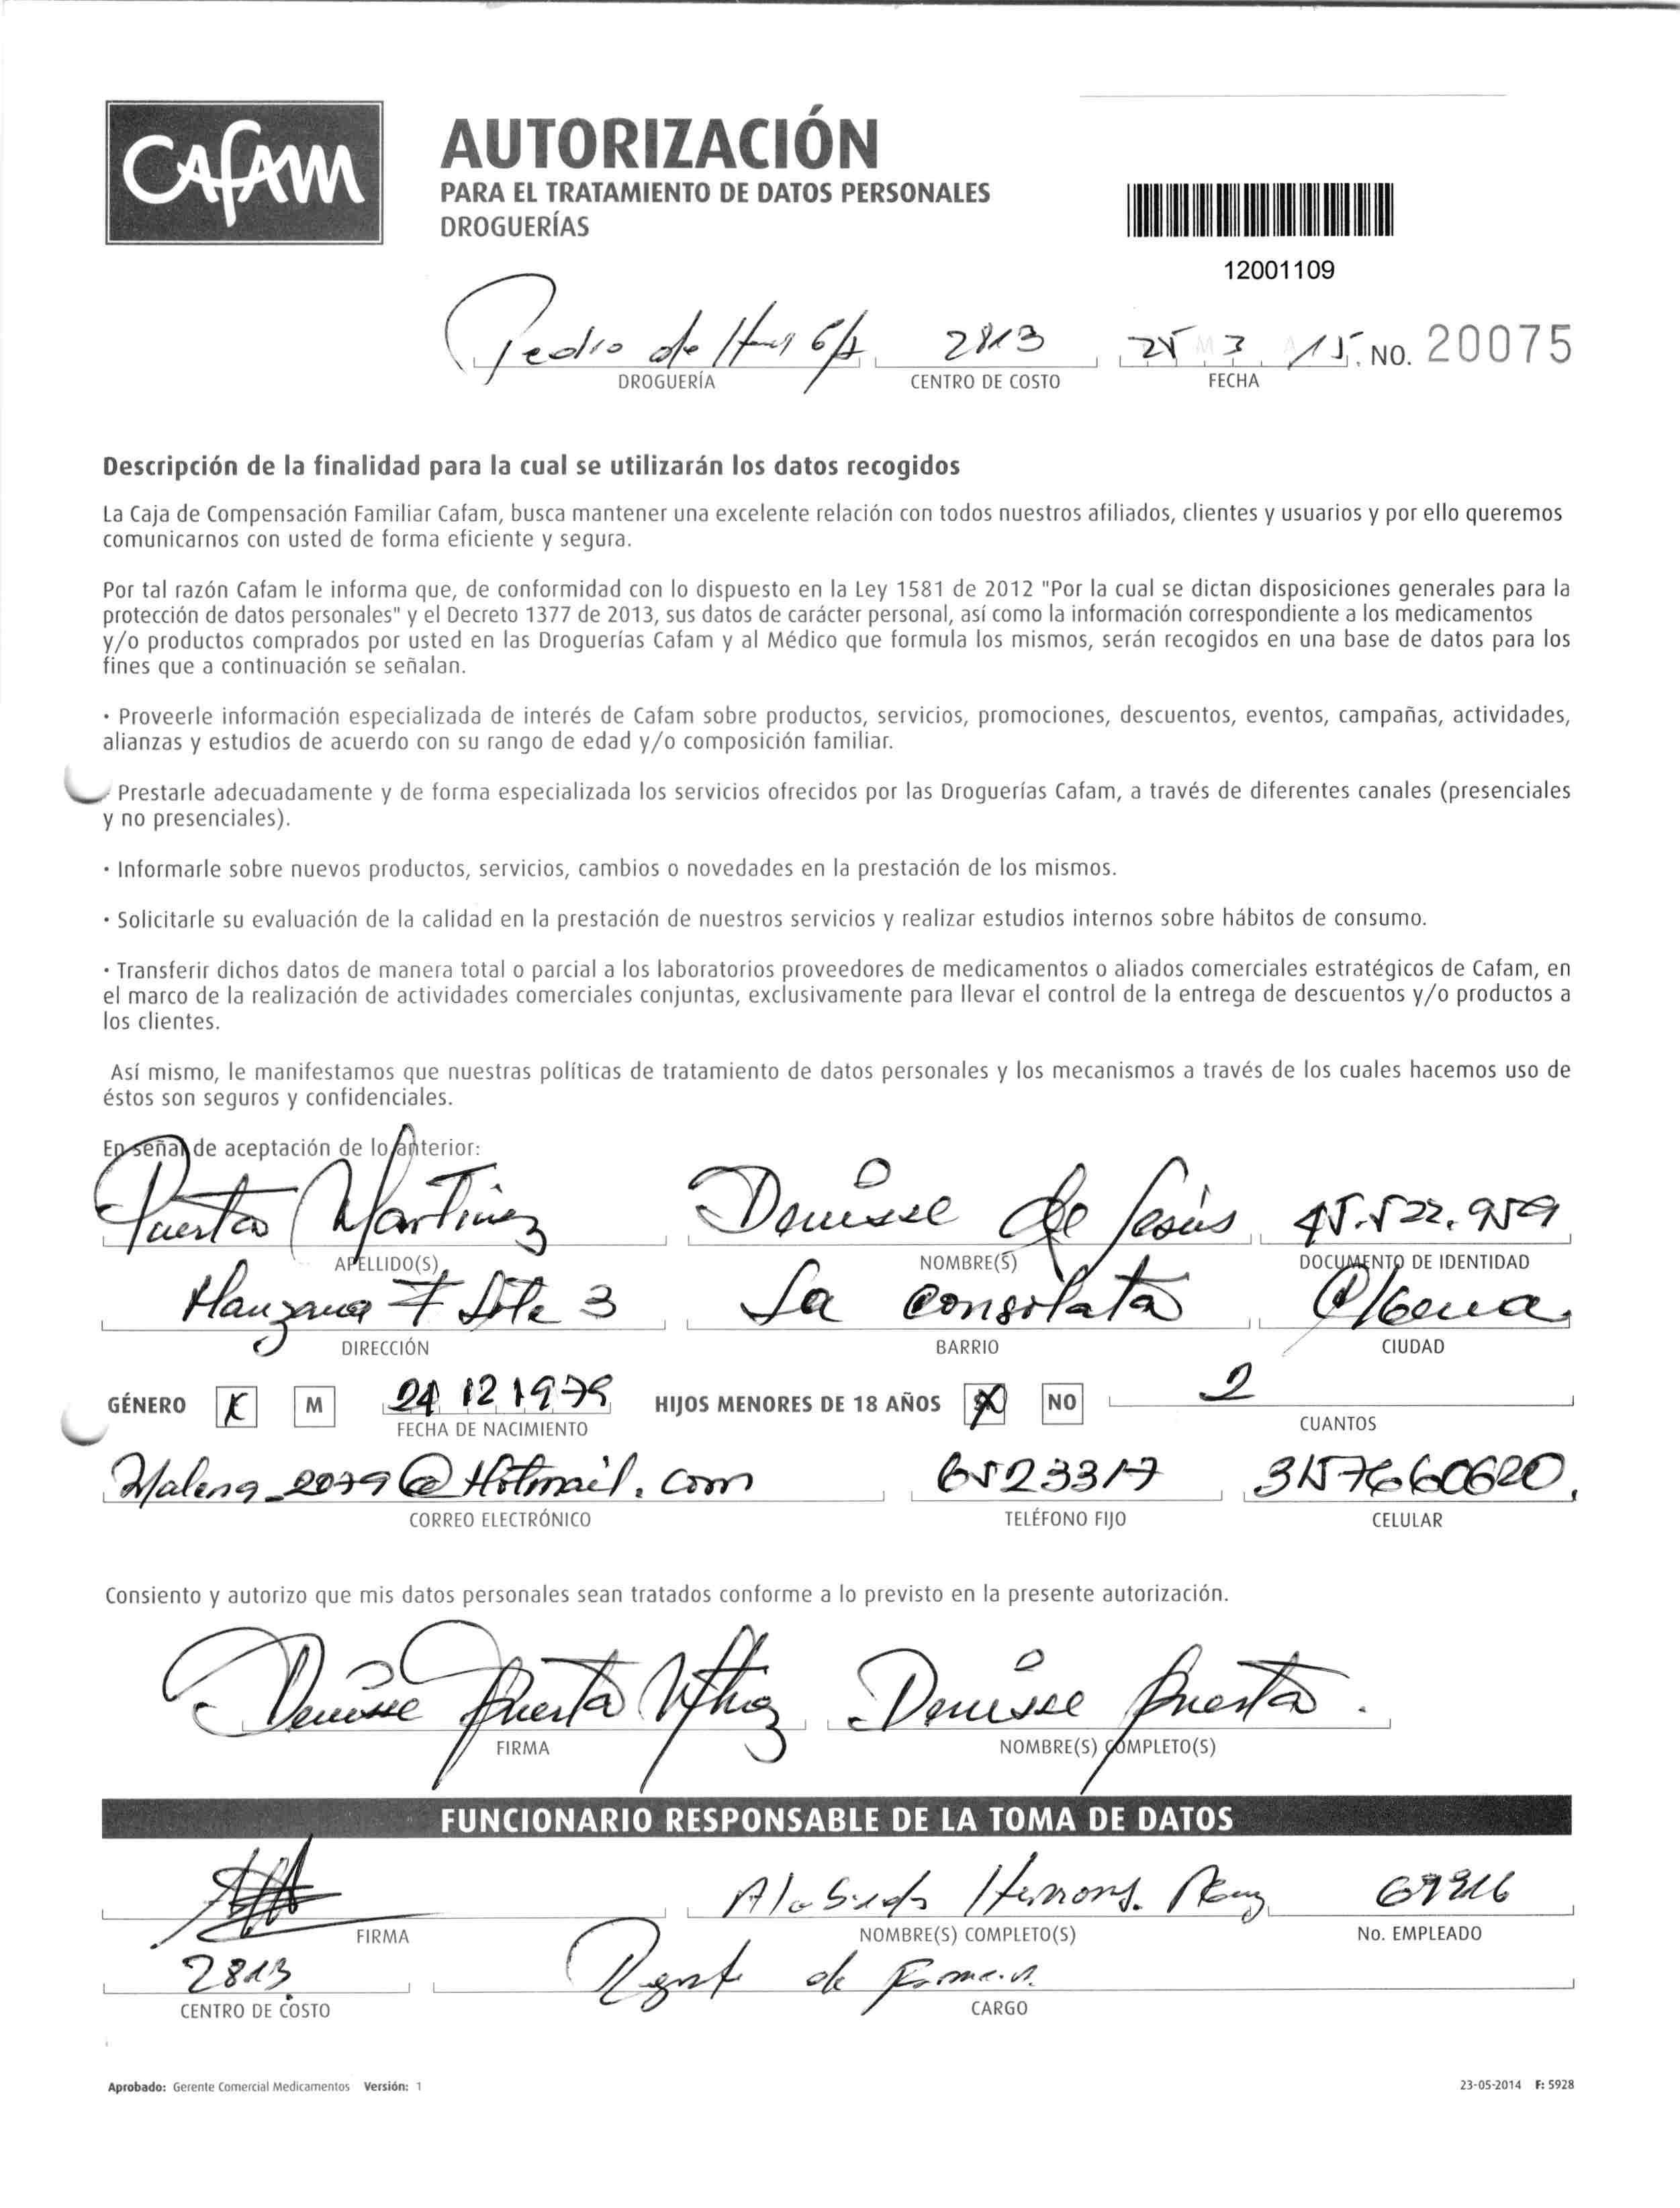 CAFAM
AUTORIZACIÓN
PARA EL TRATAMIENTO DE DATOS PERSONALES
DROGUERÍAS
12001109
Pedro de 2813 25 3 15. NO. 20075
DROGUERÍA CENTRO DE COSTO FECHA
Descripción de la finalidad para la cual se utilizarán los datos recogidos
La Caja de Compensación Familiar Cafam, busca mantener una excelente relación con todos nuestros afiliados, clientes y usuarios y por ello queremos
comunicarnos con usted de forma eficiente y segura.
Por tal razón Cafam le informa que, de conformidad con lo dispuesto en la Ley 1581 de 2012 "Por la cual se dictan disposiciones generales para la
protección de datos personales" y el Decreto 1377 de 2013, sus datos de carácter personal, así como la información correspondiente a los medicamentos
y/o productos comprados por usted en las Droguerías Cafam y al Médico que formula los mismos, serán recogidos en una base de datos para los
fines que a continuación se señalan.
· Proveerle información especializada de interés de Cafam sobre productos, servicios, promociones, descuentos, eventos, campañas, actividades,
alianzas y estudios de acuerdo con su rango de edad y/o composición familiar.
· Prestarle adecuadamente y de forma especializada los servicios ofrecidos por las Droguerías Cafam, a través de diferentes canales (presenciales
y no presenciales).
· Informarle sobre nuevos productos, servicios, cambios o novedades en la prestación de los mismos.
· Solicitarle su evaluación de la calidad en la prestación de nuestros servicios y realizar estudios internos sobre hábitos de consumo.
· Transferir dichos datos de manera total o parcial a los laboratorios proveedores de medicamentos o aliados comerciales estratégicos de Cafam, en
el marco de la realización de actividades comerciales conjuntas, exclusivamente para llevar el control de la entrega de descuentos y/o productos a
los clientes.
Así mismo, le manifestamos que nuestras políticas de tratamiento de datos personales y los mecanismos a través de los cuales hacemos uso de
éstos son seguros y confidenciales.
En señal de aceptación de lo anterior:
Puerta Martinez Denisse de Jesús 45.522.959
APELLIDO(S) NOMBRE(S) DOCUMENTO DE IDENTIDAD
Manzana 7 Lote 3 La Consolata C/gena
DIRECCIÓN BARRIO CIUDAD
GÉNERO X M 24 12 1979 HIJOS MENORES DE 18 AÑOS X NO 2
FECHA DE NACIMIENTO CUANTOS
Malena_2079@Hotmail.com 6523317 3157660620
CORREO ELECTRÓNICO TELÉFONO FIJO CELULAR
Consiento y autorizo que mis datos personales sean tratados conforme a lo previsto en la presente autorización.
Denisse Puerta Denisse Puerta.
FIRMA NOMBRE(S) COMPLETO(S)
FUNCIONARIO RESPONSABLE DE LA TOMA DE DATOS
FIRMA NOMBRE(S) COMPLETO(S) No. EMPLEADO
2813 de
CENTRO DE COSTO CARGO
Aprobado: Gerente Comercial Medicamentos Versión: 1 23-05-2014 F: 5928